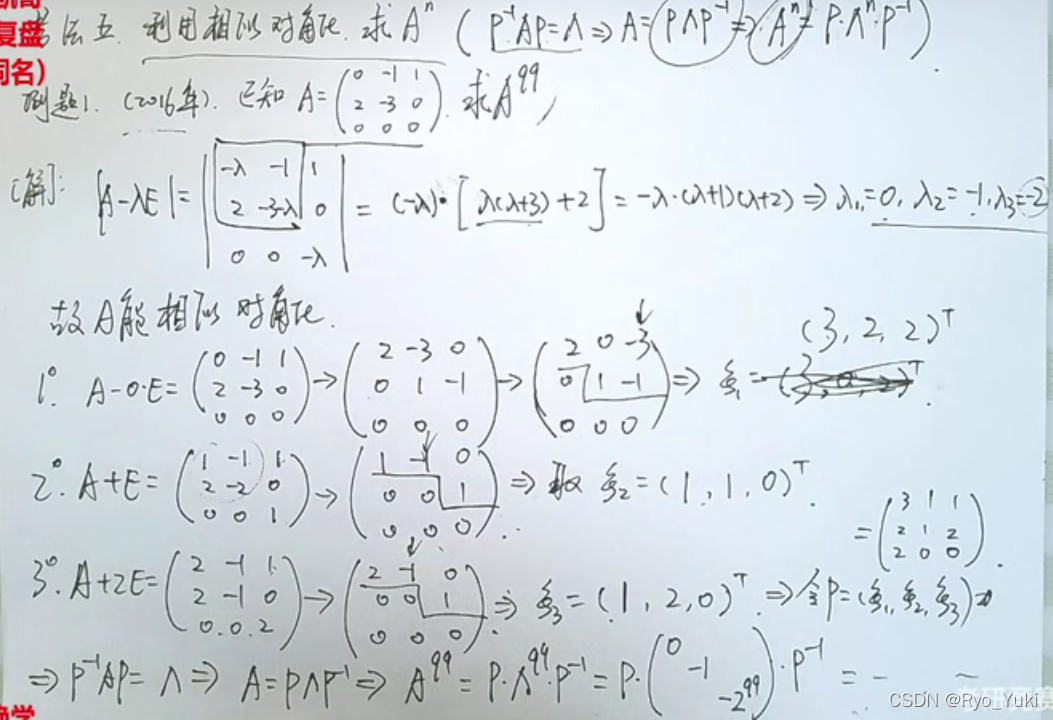 复盘
同名)
考法五. 利用相似对角化. 求Aⁿ (P⁻¹AP=Λ⇒A=PΛP⁻¹⇒Aⁿ=P·Λⁿ·P⁻¹).
例题1. (2016年). 已知 A=(0 -1 1; 2 -3 0; 0 0 0). 求A⁹⁹
[解]: |A-λE|=|-λ -1 1; 2 -3-λ 0; 0 0 -λ|=(-λ)·[λ(λ+3)+2]=-λ·(λ+1)(λ+2)⇒λ₁=0, λ₂=-1, λ₃=-2
故A能相似对角化.
(3, 2, 2)ᵀ
1°. A-0·E=(0 -1 1; 2 -3 0; 0 0 0)→(2 -3 0; 0 1 -1; 0 0 0)→(2 0 -3; 0 1 -1; 0 0 0)⇒ξ₁=
2°. A+E=(1 -1 1; 2 -2 0; 0 0 1)→(1 -1 0; 0 0 1; 0 0 0)⇒取 ξ₂=(1, 1, 0)ᵀ.
=(3 1 1; 2 1 2; 2 0 0).
3°. A+2E=(2 -1 1; 2 -1 0; 0. 0. 2)→(2 -1 0; 0 0 1; 0 0 0)⇒ξ₃=(1, 2, 0)ᵀ.⇒令P=(ξ₁, ξ₂, ξ₃)
⇒P⁻¹AP=Λ⇒A=PΛP⁻¹⇒A⁹⁹=P·Λ⁹⁹·P⁻¹=P·(0 -1 -2⁹⁹)·P⁻¹=- ~
CSDN @Ryo_Yuki